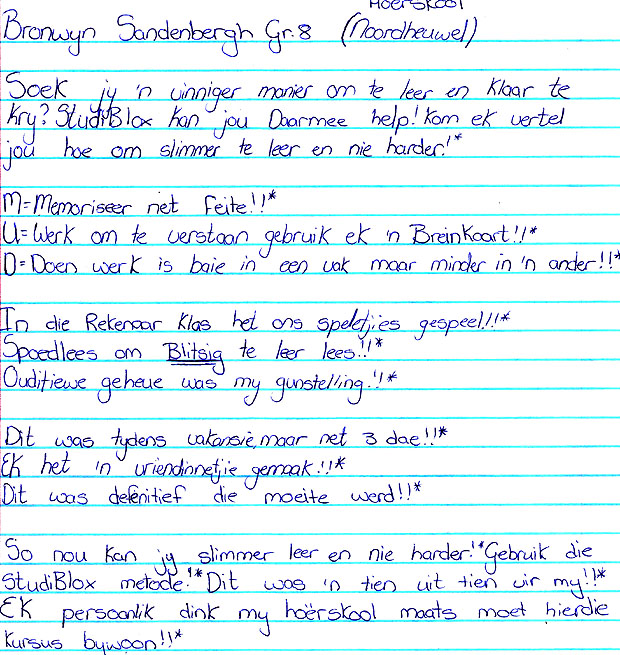 Hoërskool
Bronwyn Sandenbergh Gr.8 (Noordheuwel)
Soek jy 'n vinniger manier om te leer en klaar te
kry? StudiBlox kan jou Daarmee help! Kom ek vertel
jou hoe om slimmer te leer en nie harder!'*
M=Memoriseer net feite!!*
U=Werk om te verstaan gebruik ek 'n BreinKaart!!*
D=Doen werk is baie in een vak maar minder in 'n ander!!*
In die Rekenaar Klas het ons speletjies gespeel!!*
Spoedlees om Blitsig te leer lees!!*
Ouditiewe geheue was my gunsteling!!*
Dit was tydens vakansie, maar net 3 dae!!*
Ek het 'n vriendinnetjie gemaak!!*
Dit was definitief die moeite werd!!*
So nou kan jy slimmer leer en nie harder!'* Gebruik die
StudiBlox metode!'* Dit was 'n tien uit tien vir my!!*
Ek persoonlik dink my hoërskool maats moet hierdie
kursus bywoon!!*